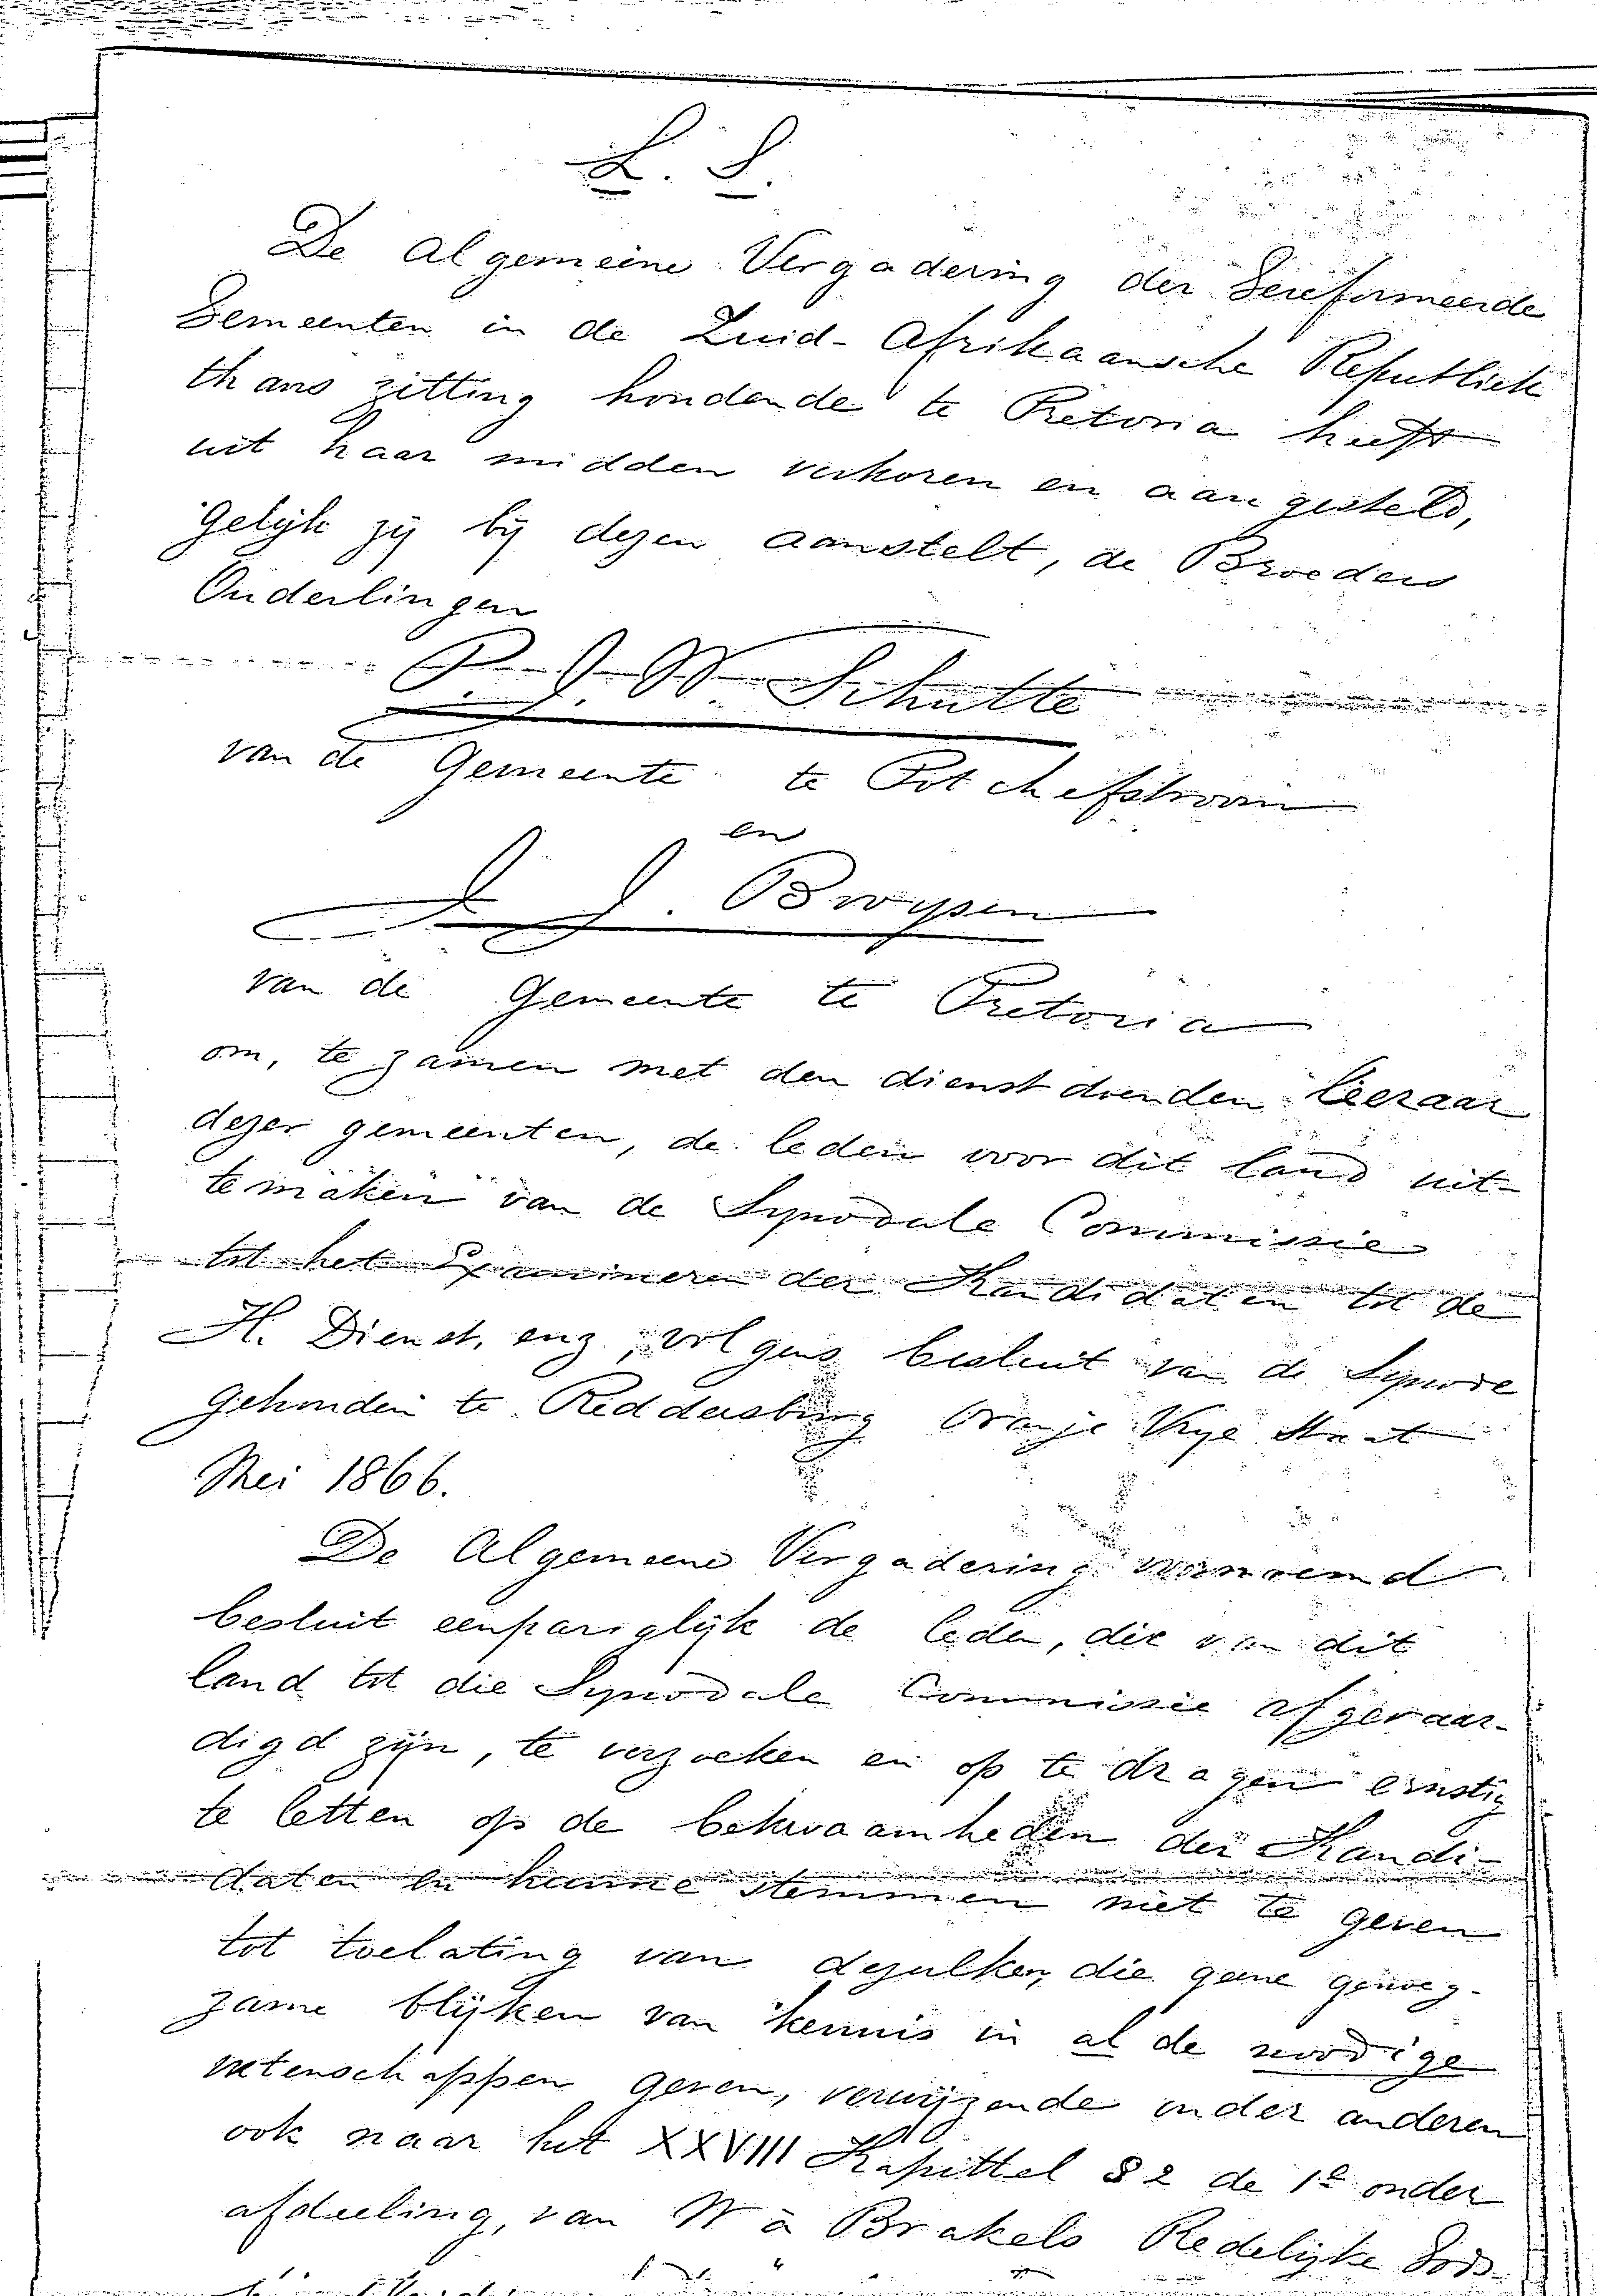 L. S.
De Algemeene Vergadering der Gereformeerde
Gemeenten in de Zuid-Afrikaansche Republiek
thans zitting houdende te Pretoria heeft
uit haar midden verkoren en aangesteld,
Gelijk zij bij dezen aanstelt, de Broeders
Ouderlingen
P. J. W. Schutte
van de Gemeente te Potchefstroom
en
J. J. Booysen
van de Gemeente te Pretoria
om, te zamen met den dienstdoenden Leeraar
dezer gemeenten, de leden voor dit land uit-
temaken van de Synodale Commissie
tot het Examineren der Kandidaten tot de
H. Dienst, enz., volgens besluit van de Synode
Gehouden te Reddersburg Oranje Vrye Staat
Mei 1866.
De Algemeene Vergadering voornoemd
besluit eenpariglijk de leden, die van dit
land tot die Synodale Commissie afgevaar-
digd zijn, te verzoeken en op te dragen ernstig
te letten op de bekwaamheden der Kandi-
daten en hunne stemmen niet te geven
tot toelating van dezulken, die geene genoeg-
zame blijken van kennis in al de noodige
wetenschappen geven, verwijzende onder anderen
ook naar het XXVIII Kapittel § 2 de 1e onder
afdeeling, van W à Brakels Redelijke Gods-